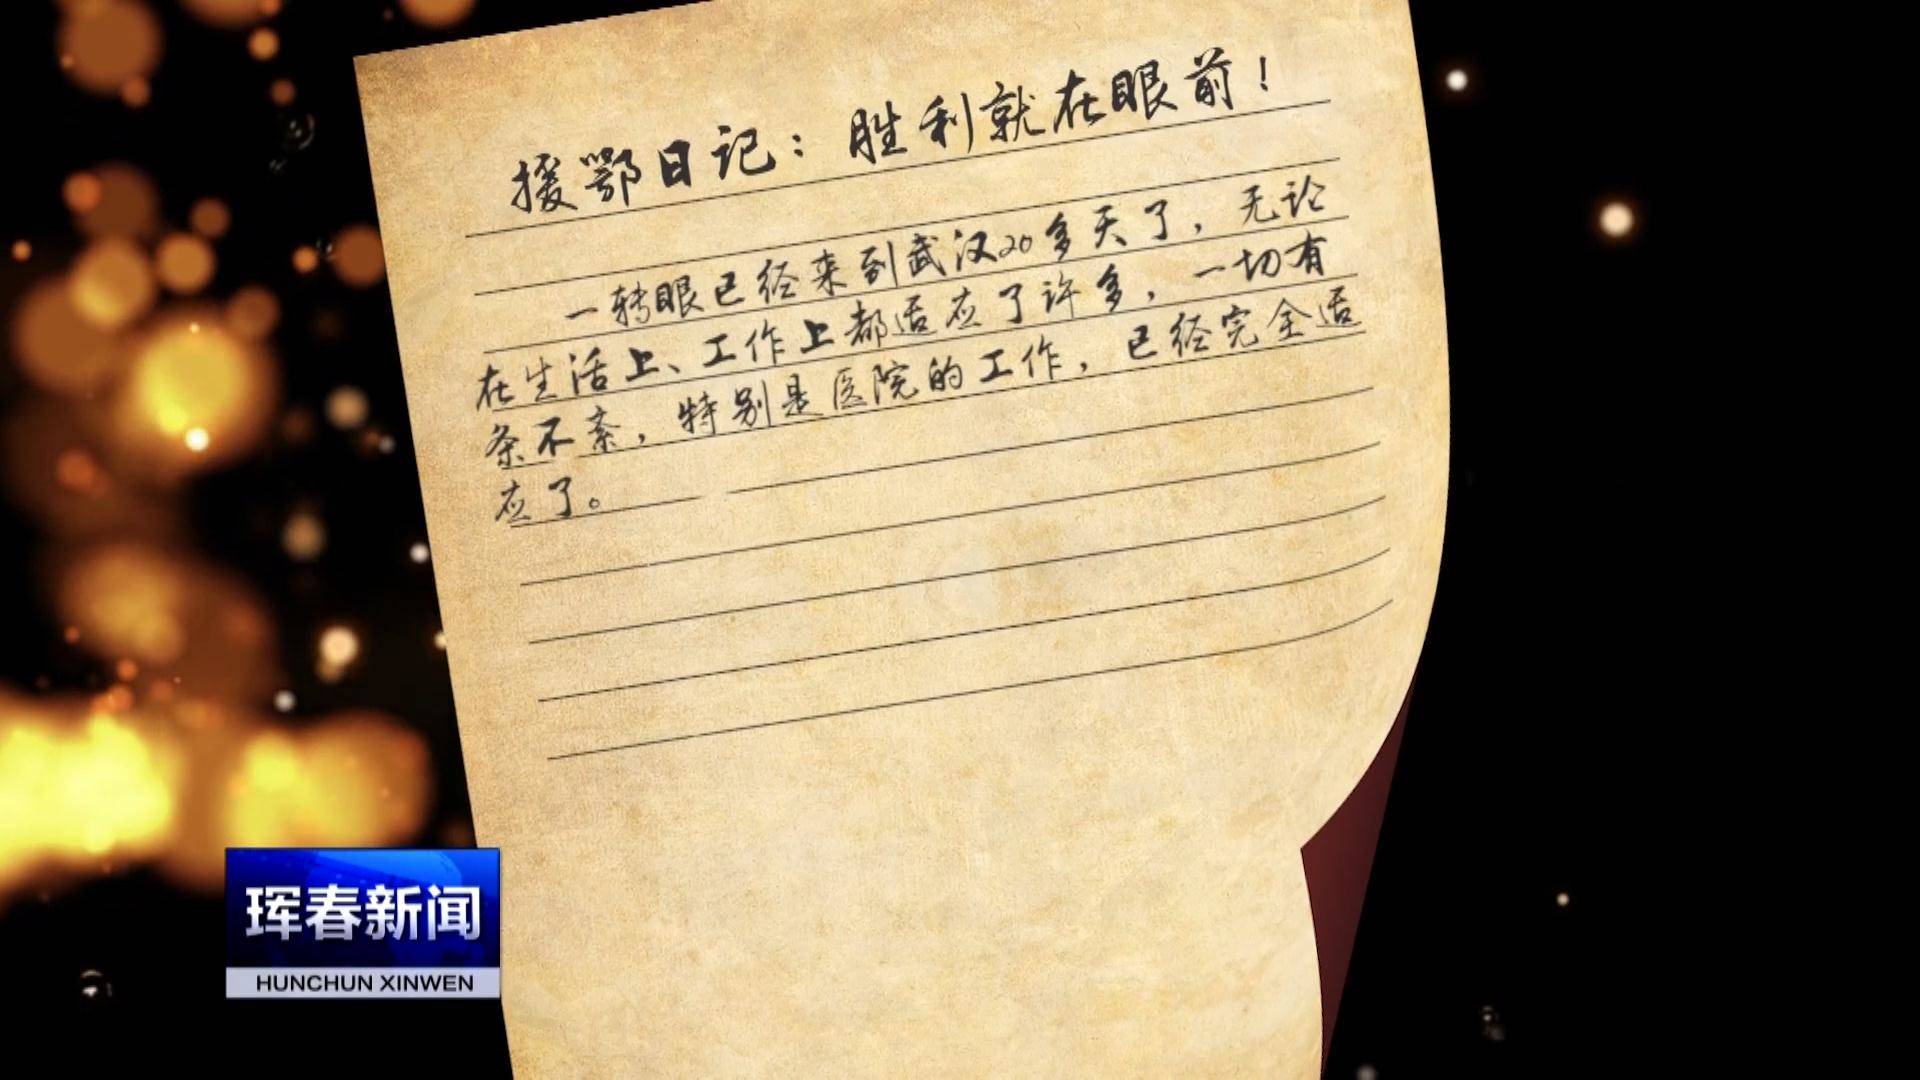 援鄂日记：胜利就在眼前！
一转眼已经来到武汉20多天了，无论
在生活上、工作上都适应了许多，一切有
条不紊，特别是医院的工作，已经完全适
应了。
珲春新闻
HUNCHUN XINWEN